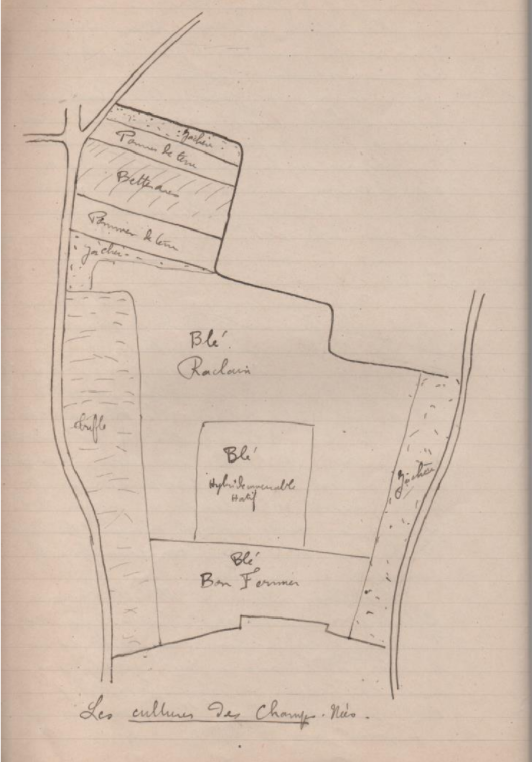 Jachère
Pommes de terre
Betteraves
Pommes de terre
Jachère
Blé
trèfle
Blé
Hatif
Jachère
Blé
Bon Fermier
Les cultures des Champs-Nées.